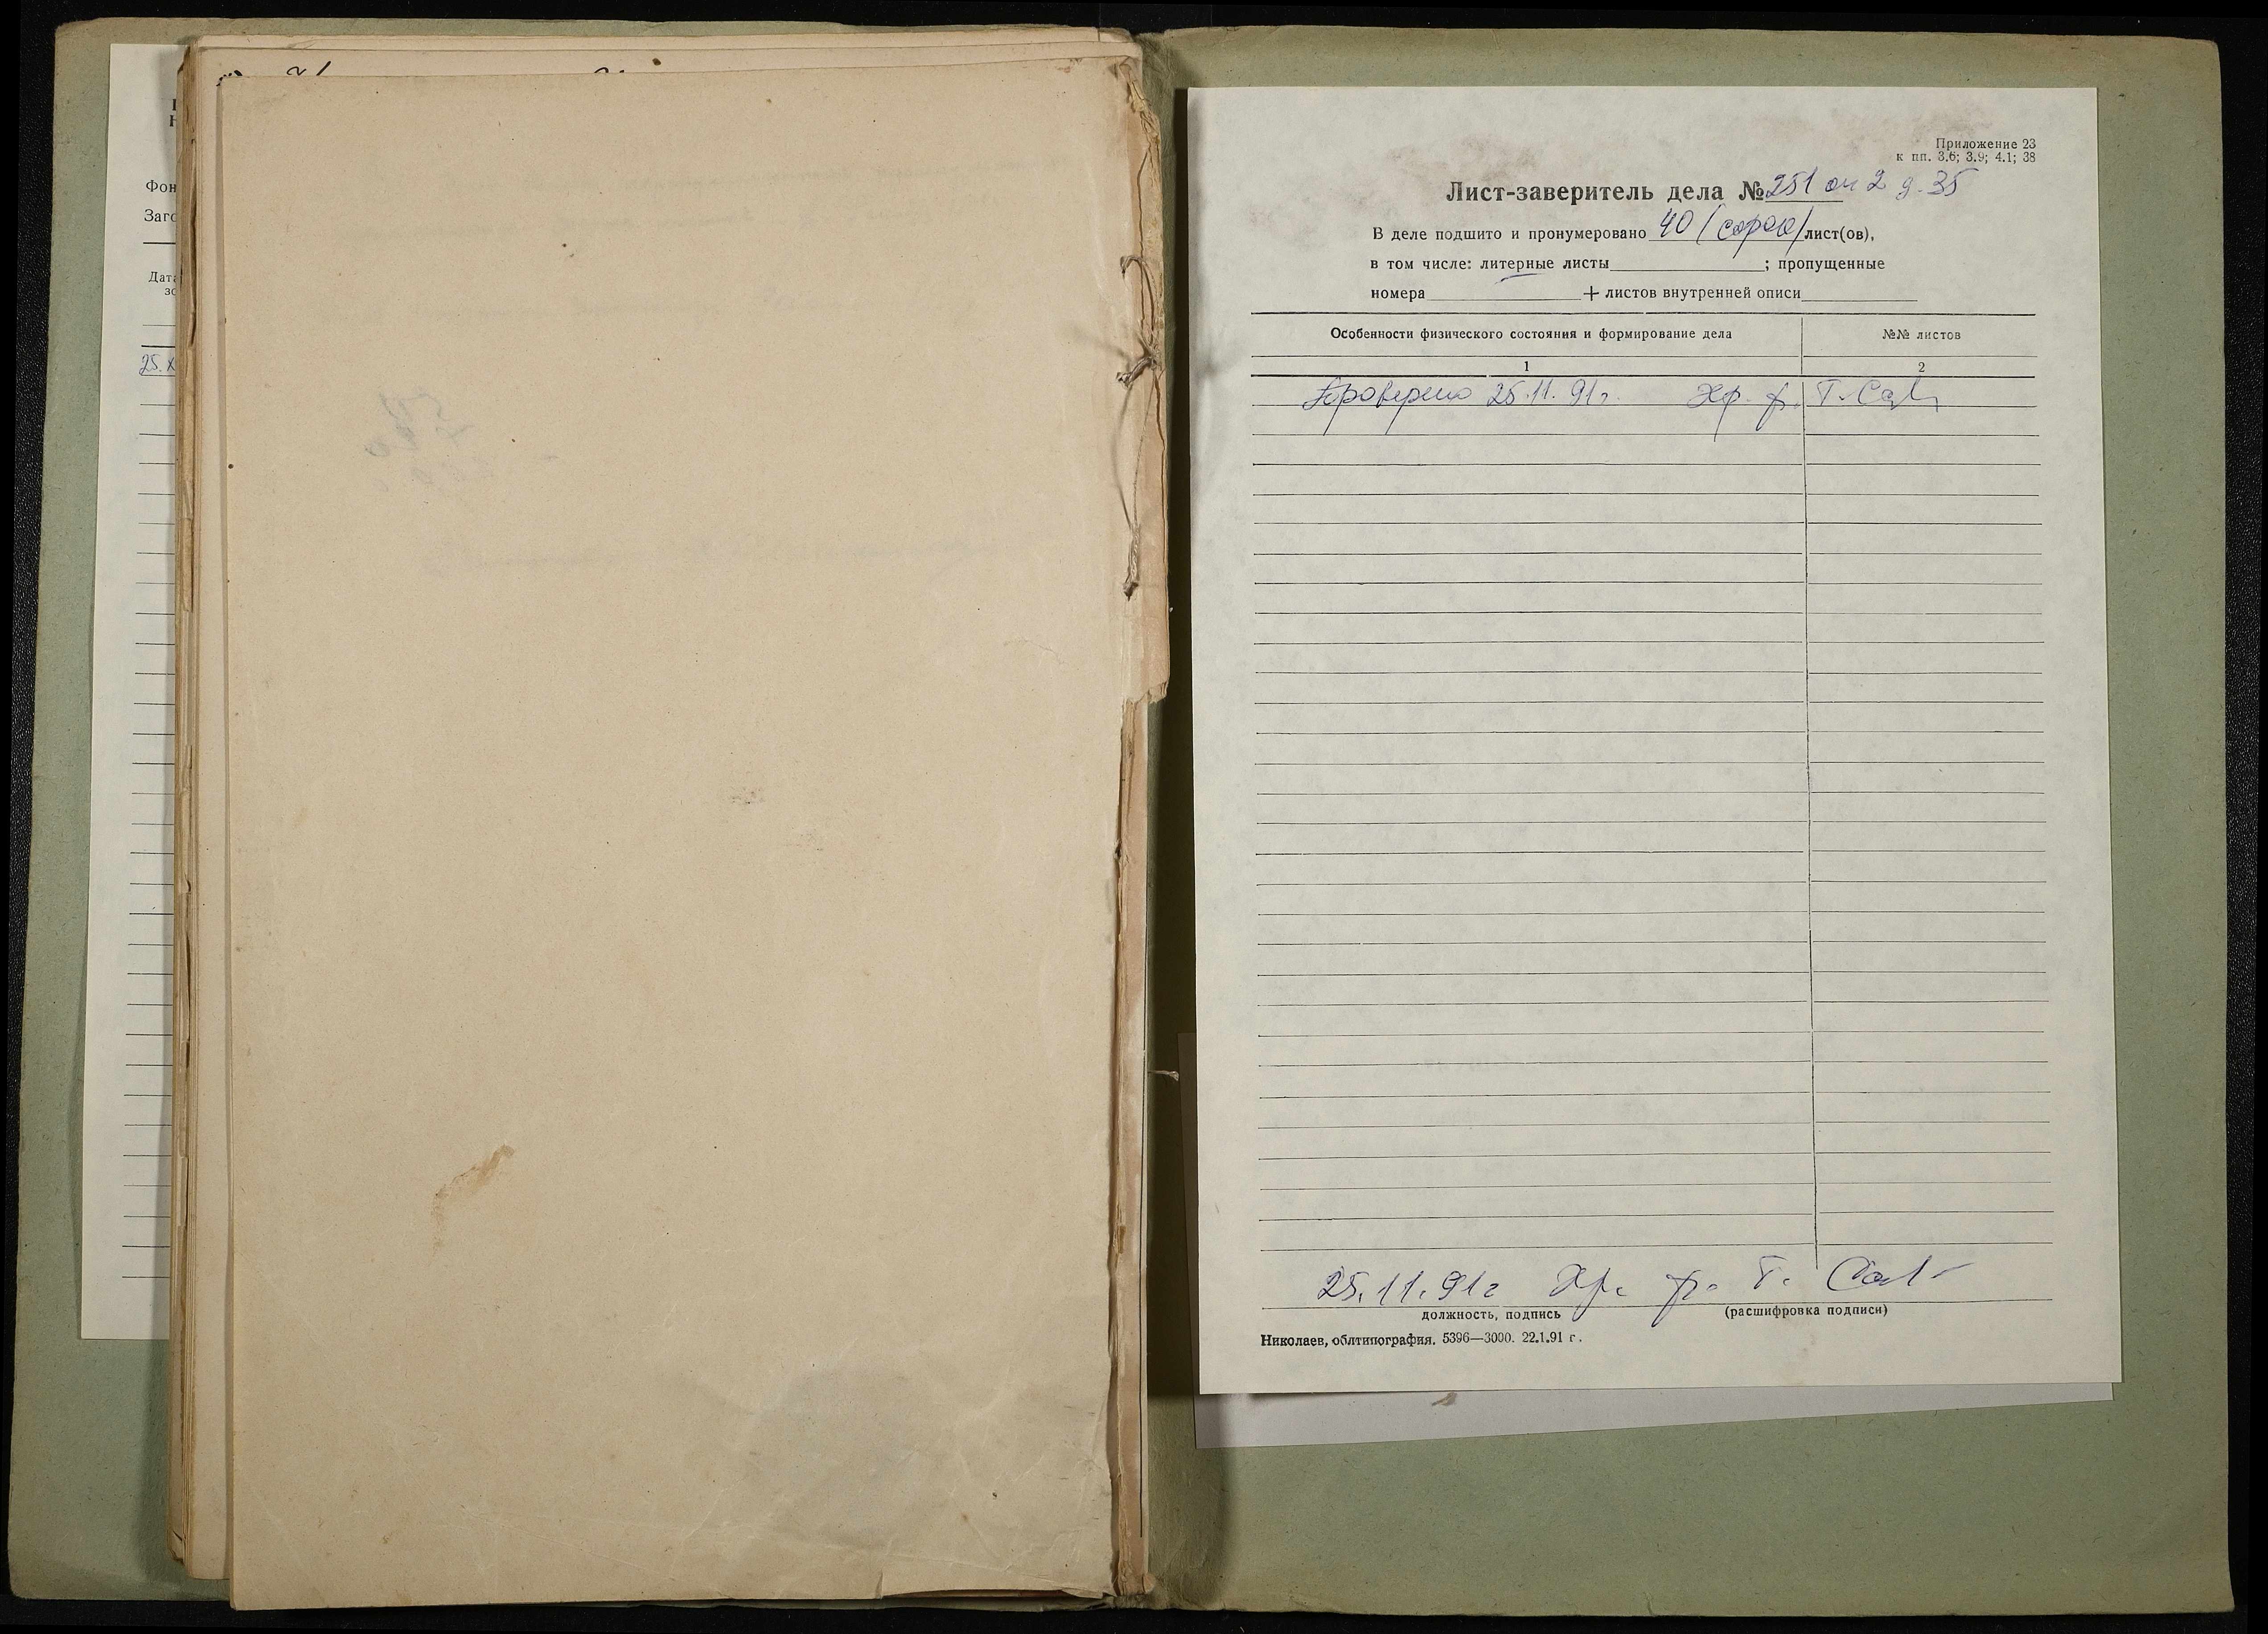 Фон
Заго
Дата
зо
25.X
Приложение 23
к пп. 3.6; 3.9; 4.1; 38
Лист-заверитель дела № 251 оп 2 д. 35
В деле подшито и пронумеровано 40 /сорок/ лист(ов),
в том числе: литерные листы ; пропущенные
номера + листов внутренней описи
Особенности физического состояния и формирование дела №№ листов
1 2
Проверено 25.11.91г. Хр. ф. Т.
25.11.91г Хр. ф. Т.
должность, подпись (расшифровка подписи)
Николаев, облтипография. 5396—3000. 22.1.91 г.